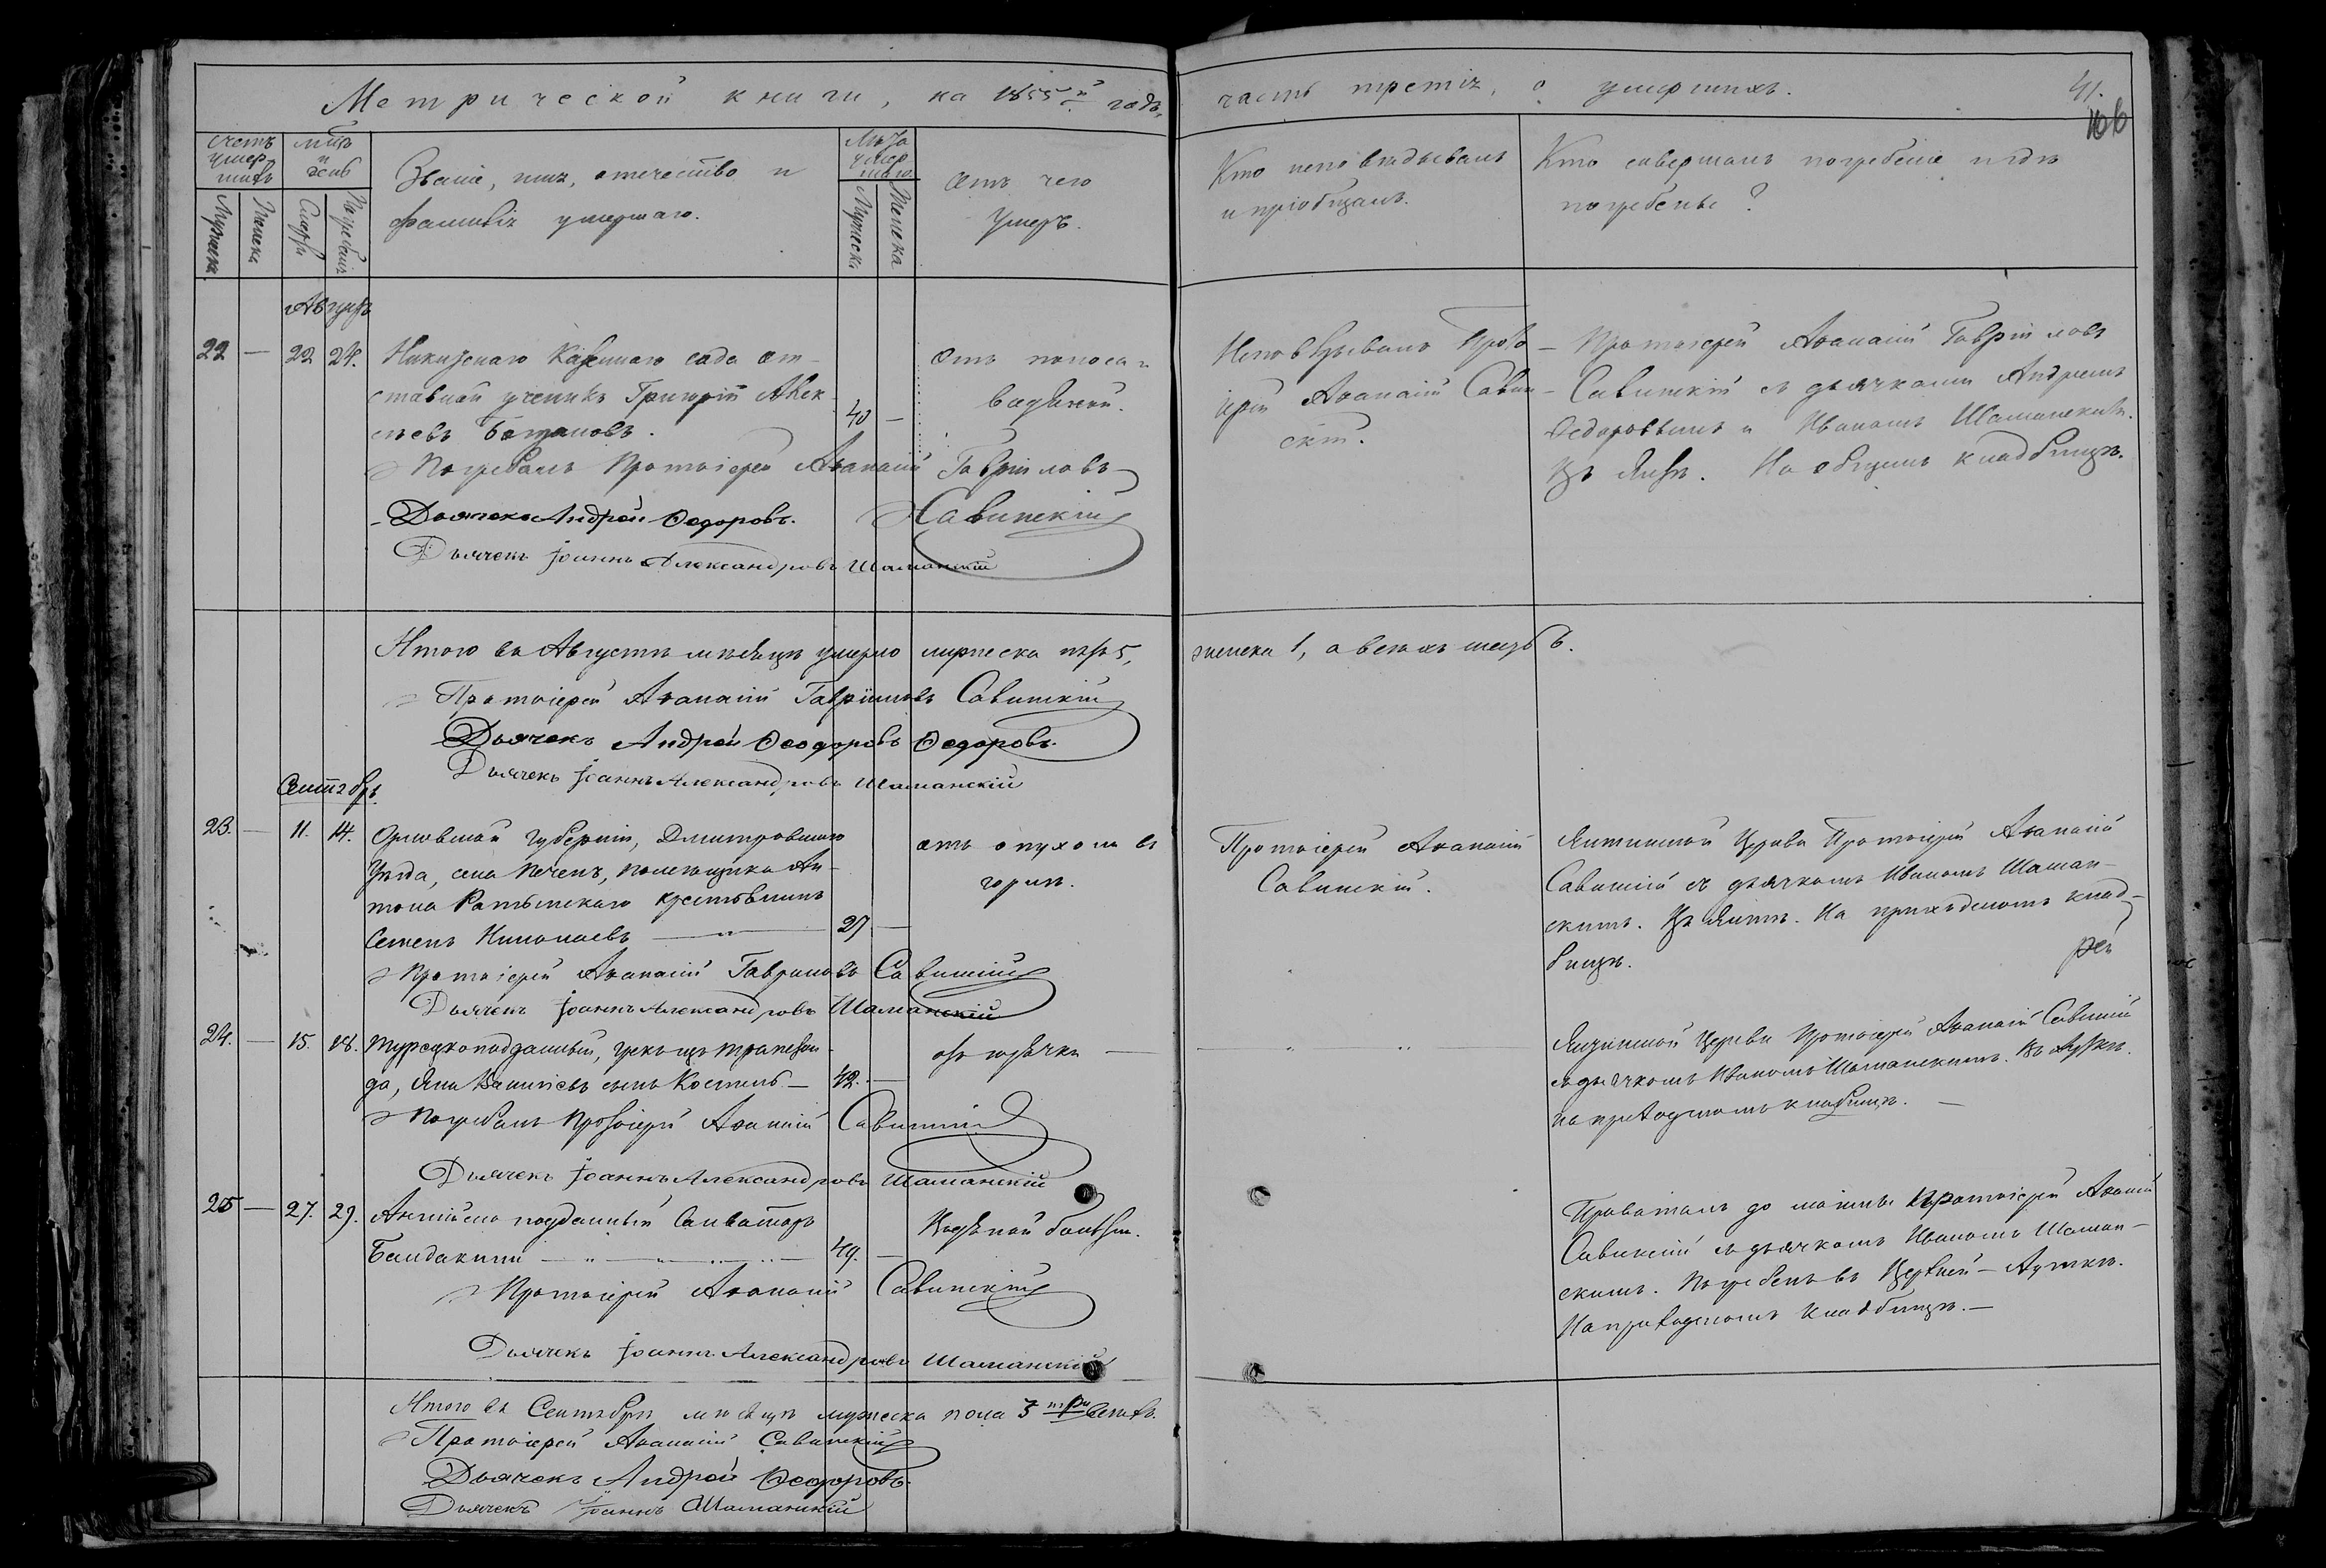 Метрической книги, на 1855й годъ,
часть третія, о умершихъ.
41.
166
Счетъ умер-шихъ
Мѣс. и день
Званіе, имя, отечество и
фамилія умершаго.
Лѣта умер шаго
Отъ чего
умеръ.
Кто исповѣдывалъ
и пріобщалъ.
Кто совершалъ погребеніе и гдѣ
погребены?
Мужеска
Женска
Смерти
Погребенія
Мужеска
Женска
Августъ
22 — 22 24.
Никитскаго Казеннаго сада от-
ставной ученикъ Григорій Алек-
сѣевъ
40 —
Отъ поноса и
водяной.
Погребалъ Протоіерей Аѳанасій Гавріиловъ
Савинскій
Дьячекъ Андрей Ѳедоровъ.
Дьячекъ Іоаннъ Александровъ Шаманскій
Исповѣдывалъ Прото-
іерей Аѳанасій Савин-
скій.
Протоіерей Аѳанасій Гавріиловъ
Савинскій съ дьячками Андреемъ
Ѳедоровымъ и Иваномъ Шаманскимъ.
Въ Ялтѣ. На общемъ кладбищѣ.
Итого въ Августѣ мѣсяцѣ умерло мужеска пять 5,
женска 1, а всехъ шесть 6.
Протоіерей Аѳанасій Гавріиловъ Савинскій
Дьячекъ Андрей Ѳеодоровъ Ѳедоровъ.
Дьячекъ Іоаннъ Александровъ Шаманскій
Сентябрь
23. — 11. 14.
Орловской Губерніи, Дмитровскаго
Уѣзда, села помещика Ан-
тона крестьянинъ
Семенъ Николаевъ — 27 —
отъ опухоли въ
горлѣ.
Протоіерей Аѳанасій Гавриловъ Савинскій
Дьячекъ Іоаннъ Александровъ Шаманскій
Протоіерей Аѳанасій
Савинскій.
Ялтинской Церкви Протоіерей Аѳанасій
Савинскій съ дьячкомъ Иваномъ Шаман-
скимъ. Въ Ялтѣ. На приходскомъ клад-
бищѣ.
24. — 15. 18.
Турецкоподданный, Грекъ изъ Трапезон-
да, сынъ — 42. —
отъ горячки —
Погребалъ Протоіерей Аѳанасій Савинскій
Дьячекъ Іоаннъ Александровъ Шаманскій
Ялтинской Церкви Протоіерей Аѳанасій Савинскій
съ дьячкомъ Иваномъ Шаманскимъ. Въ Аутке.
на приходскомъ кладбищѣ. —
25 — 27. 29.
Англійско подданный Салваторъ
49. —
болезни.
Протоіерей Аѳанасій Савинскій
Дьячекъ Іоаннъ Александровъ Шаманскій
Провожалъ до могилы Протоіерей Аѳанасій
Савинскій съ дьячкомъ Иваномъ Шаман-
скимъ. Погребенъ въ Аутке.
На приходскомъ кладбищѣ. —
Итого въ Сентябрѣ мѣсяцѣ мужеска пола 3 три
Протоіерей Аѳанасій Савинскій
Дьячекъ Андрей Ѳедоровъ.
Дьячекъ Іоаннъ Шаманскій